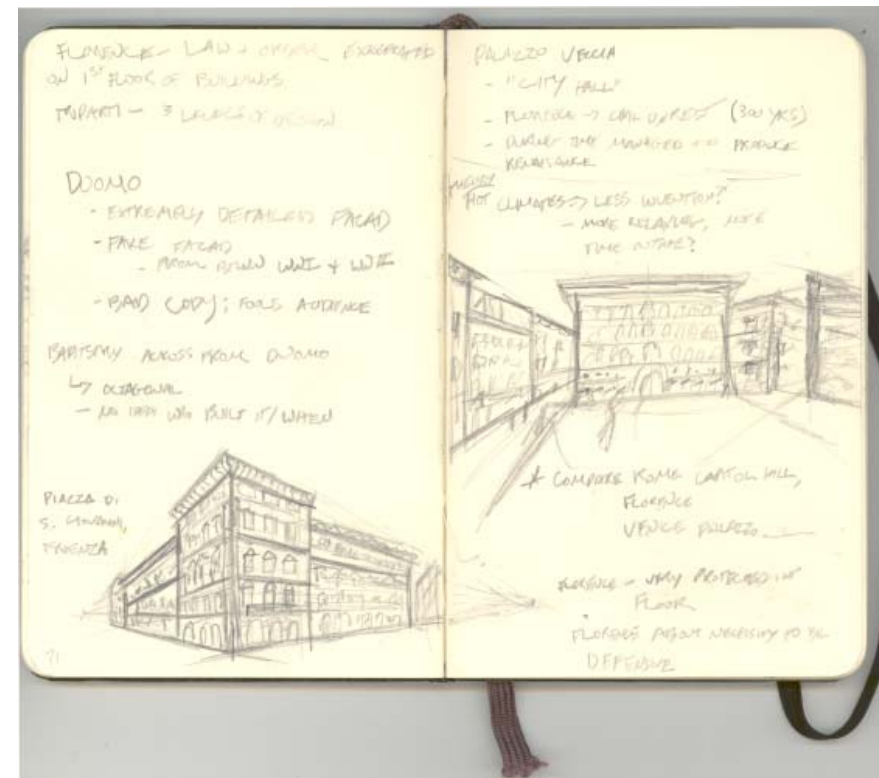 FLORENCE - LAW + ORDER EXAGGERATED
ON 1ST FLOOR OF BUILDINGS
TRIPARTI - 3 LEVELS OF DESIGN
DUOMO
- EXTREMELY DETAILED FACAD
- FAKE FACAD
- FROM BTWN WWI + WWII
- BAD COPY; FOOLS AUDIENCE
BAPTISTRY ACROSS FROM DUOMO
↳ OCTAGONAL
- NO IDEA WHO BUILT IT/WHEN
PIAZZA DI
S. GIOVANNI,
FIRENZA
71
PALAZZO VECCIA
- "CITY HALL"
- FLORENCE → CIVIL UNREST (300 YRS)
- DURING TIME MANAGED TO PRODUCE
RENAISSANCE
HOT CLIMATES → LESS INVENTION?
- MORE RELAXED, MORE
TIME OUTSIDE?
* COMPARE ROME CAPITOL HILL,
FLORENCE
VENICE PALAZZO
FLORENCE - VERY PROTECTED 1ST
FLOOR
FLORENCE ABOUT NECESSITY TO BE
DEFENSIVE